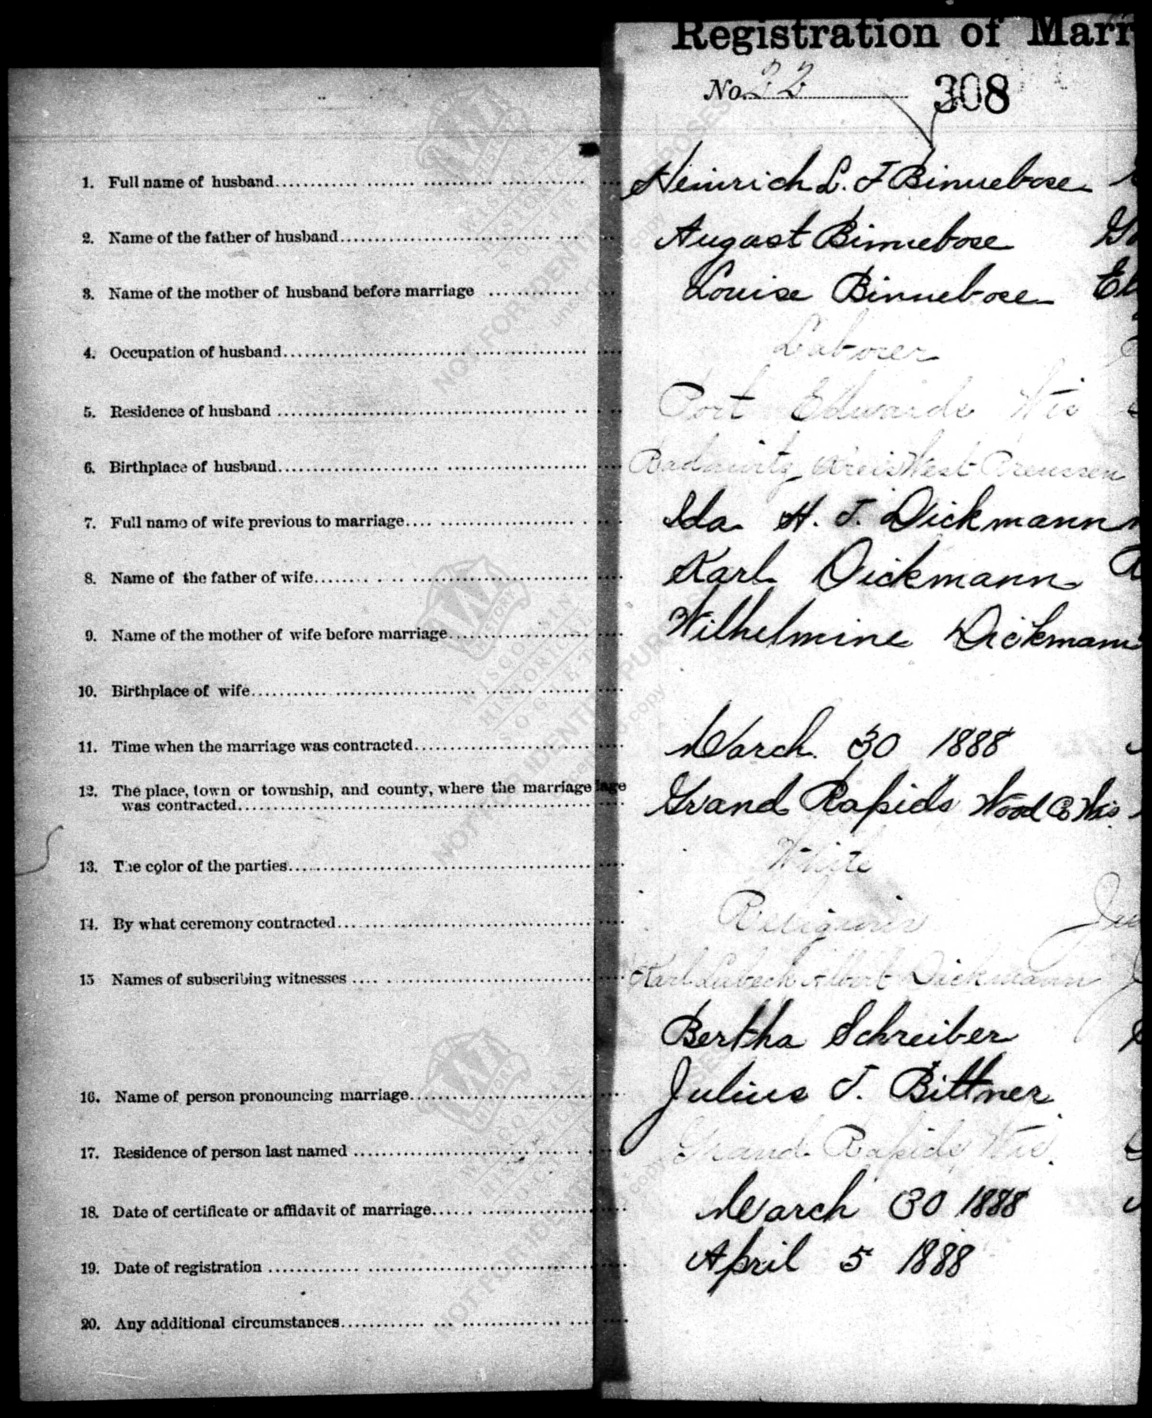 Registration of Marr
No. 22 308
1. Full name of husband Heinrich L. F Binnebose
2. Name of the father of husband August Binnebose
3. Name of the mother of husband before marriage Louise Binnebose El
4. Occupation of husband Laborer
5. Residence of husband Port Edwards Wis
6. Birthplace of husband Kreis West Preussen
7. Full name of wife previous to marriage Ida H. J. Dickmann
8. Name of the father of wife Karl Dickmann
9. Name of the mother of wife before marriage Wilhelmine Dickmann
10. Birthplace of wife
11. Time when the marriage was contracted March 30 1888
12. The place, town or township, and county, where the marriage
was contracted Grand Rapids Wood Co Wis
13. The color of the parties White
14. By what ceremony contracted Religious
15 Names of subscribing witnesses Karl Lubeck Albert Dickmann
Bertha Schreiber
16. Name of person pronouncing marriage Julius T. Bittner
17. Residence of person last named Grand Rapids Wis.
18. Date of certificate or affidavit of marriage March 30 1888
19. Date of registration April 5 1888
20. Any additional circumstances